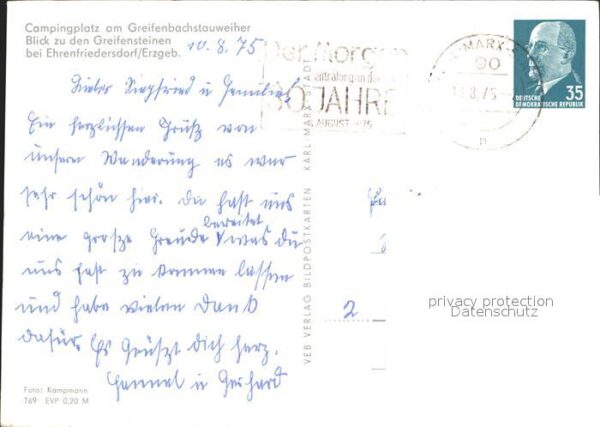 Campingplatz am Greifenbachstauweiher
Blick zu den Greifensteinen
bei Ehrenfriedersdorf/Erzgeb.
10.8.75
Lieber Siegfried u Familie!
Ein herzlichen Gruß von
unsern Wanderung es war
sehr schön hier. Du hast uns
eine grosze Freude bereitet was du
uns hast zu kommen lassen
und habe vielen Dank
dafür. Es Grüszt dich herz.
Hannel u Gerhard
Foto: Kampmann
769 EVP 0,20 M
VEB VERLAG BILDPOSTKARTEN KARL-MARX-STADT
Der Morgen
Zentralorgan der
30 JAHRE
AUGUST 1975
-MARX-
90
.8.75
n
DEUTSCHE
DEMOKRATISCHE REPUBLIK
35
2
privacy protection
Datenschutz